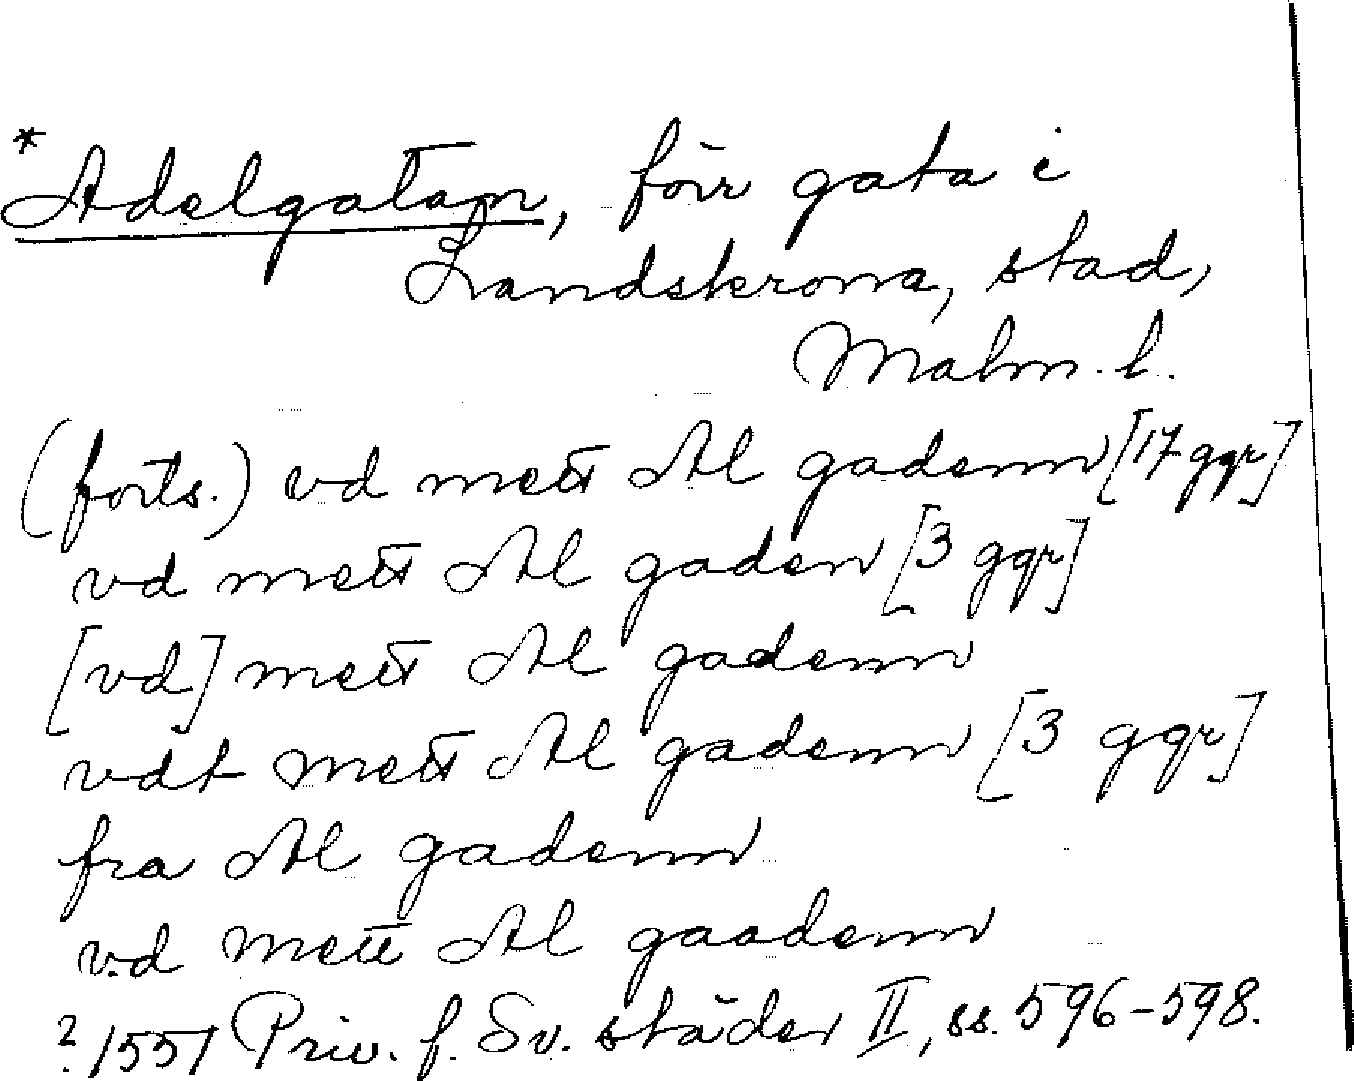 *Adelgatan, förr gata i
Landskrona, stad,
Malm. l.
(forts.) vd mett Al gadenn [17 ggr]
vd mett Al gaden [3 ggr]
[vd] mett Al gadenn
vdt mett Al gadenn [3 ggr]
fra Al gadenn
vd mett Al gaadenn
? 1551 Priv. f. Sv. städer II, ss. 596-598.